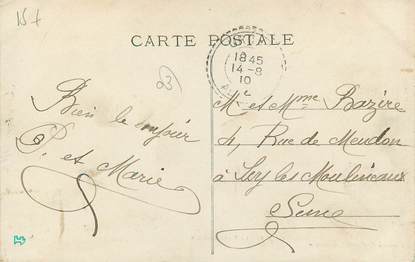 15+
CARTE POSTALE
18 45
14-8
10
23
Bien le bonjour
P. et Marie
M et Mme Bazère
4, Rue de Meudon
à Issy les Moulineaux
Seine